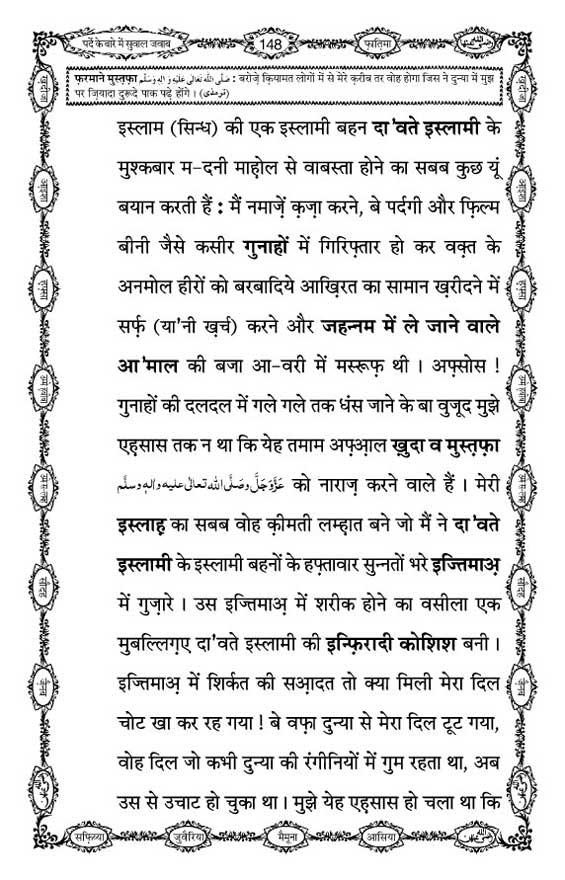 पर्दे के बारे में सुवाल जवाब
148
फ़ातिमा
फ़रमाने मुस्तफ़ा صَلَّى اللّٰهُ تَعَالٰى عَلَيْهِ وَاٰلِهٖ وَسَلَّم : बरोज़े क़ियामत लोगों में से मेरे क़रीब तर वोह होगा जिस ने दुन्या में मुझ
पर ज़ियादा दुरूदे पाक पढ़े होंगे। (ترمذی)
इस्लाम (सिन्ध) की एक इस्लामी बहन दा'वते इस्लामी के
मुश्कबार म-दनी माह़ोल से वाबस्ता होने का सबब कुछ यूं
बयान करती हैं : मैं नमाज़ें क़ज़ा करने, बे पर्दगी और फ़िल्म
बीनी जैसे कसीर गुनाहों में गिरिफ़्तार हो कर वक़्त के
अनमोल हीरों को बरबादिये आख़िरत का सामान ख़रीदने में
सर्फ़ (या'नी ख़र्च) करने और जहन्नम में ले जाने वाले
आ'माल की बजा आ-वरी में मस्रूफ़ थी । अफ़्सोस !
गुनाहों की दलदल में गले गले तक धंस जाने के बा वुजूद मुझे
एह़सास तक न था कि येह तमाम अफ़्आ़ल ख़ुदा व मुस्त़फ़ा
عَزَّوَجَلَّ وصَلَّى اللّٰه تعالٰى عليه واٰلهٖ وسلَّم को नाराज़ करने वाले हैं । मेरी
इस्लाह़ का सबब वोह क़ीमती लम्ह़ात बने जो मैं ने दा'वते
इस्लामी के इस्लामी बहनों के हफ़्तावार सुन्नतों भरे इज्तिमाअ़
में गुज़ारे । उस इज्तिमाअ़ में शरीक होने का वसीला एक
मुबल्लिग़ए दा'वते इस्लामी की इन्फ़िरादी कोशिश बनी ।
इज्तिमाअ़ में शिर्कत की सआ़दत तो क्या मिली मेरा दिल
चोट खा कर रह गया ! बे वफ़ा दुन्या से मेरा दिल टूट गया,
वोह दिल जो कभी दुन्या की रंगीनियों में गुम रहता था, अब
उस से उचाट हो चुका था । मुझे येह एह़सास हो चला था कि
सफ़िय्या
जुवैरिया
मैमूना
आसिया